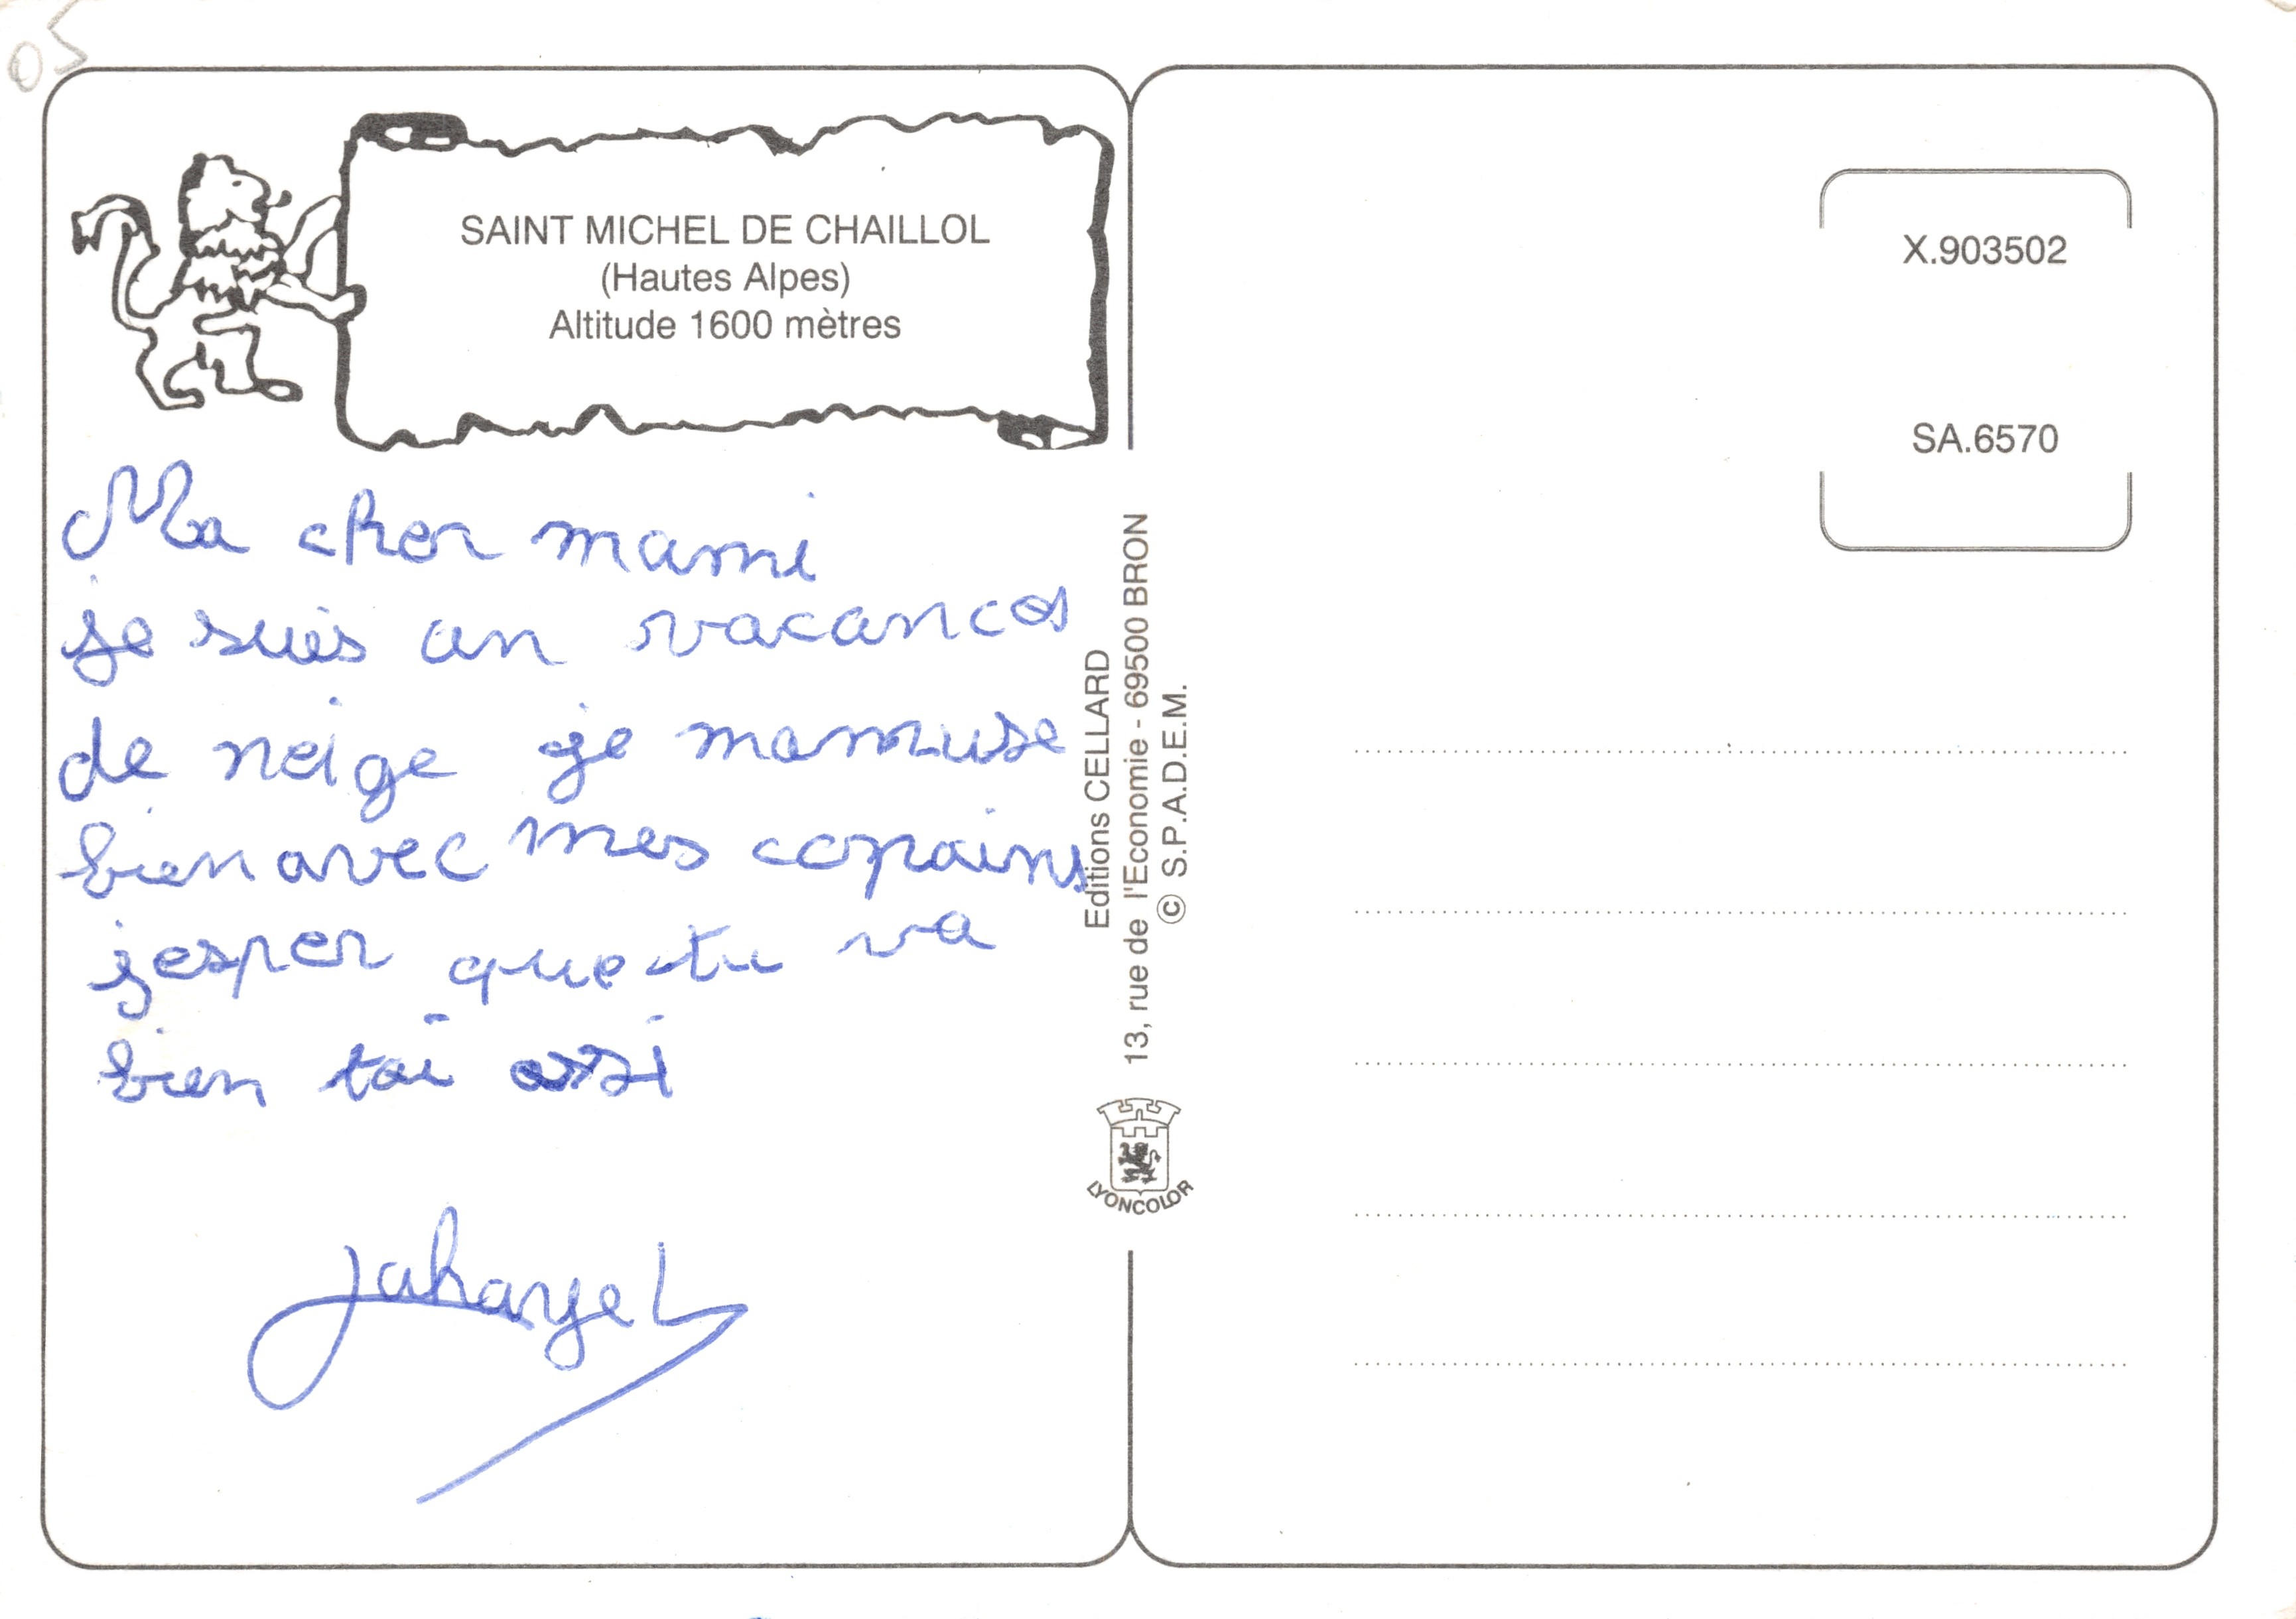 05
SAINT MICHEL DE CHAILLOL
(Hautes Alpes)
Altitude 1600 mètres
Ma cher mami
je suis an vacances
de neige je mamuse
bien avec mes copains
jesper que tu va
bien toi ossi
Editions CELLARD
13, rue de l'Economie - 69500 BRON
© S.P.A.D.E.M.
LYONCOLOR
X.903502
SA.6570